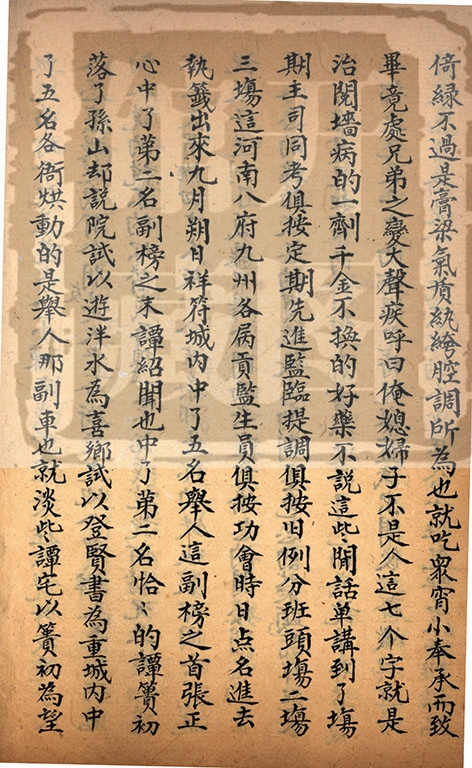 倚緑不過是膏粱氣質紈絝腔調所為也就吃衆宵小奉承而致
畢竟處兄弟之變大聲疾呼曰俺媳婦子不是人這七个字就是
治䦧墻病的一劑千金不換的好藥不說這些閒話单講到了塲
期主司同考俱按定期先進監臨提調俱按旧例分班頭塲二塲
三塲這河南八府九州各屬貢監生員俱按功會時日点名進去
執籤出來九月朔日祥符城内中了五名舉人這副榜之首張正
心中了苐二名副榜之末譚紹聞也中了苐二名恰〻的譚簣初
落了孫山却説院試以遊泮水為喜鄉試以登賢書為重城内中
了五名各衙烘動的是舉人那副車也就淡些譚宅以簣初為望